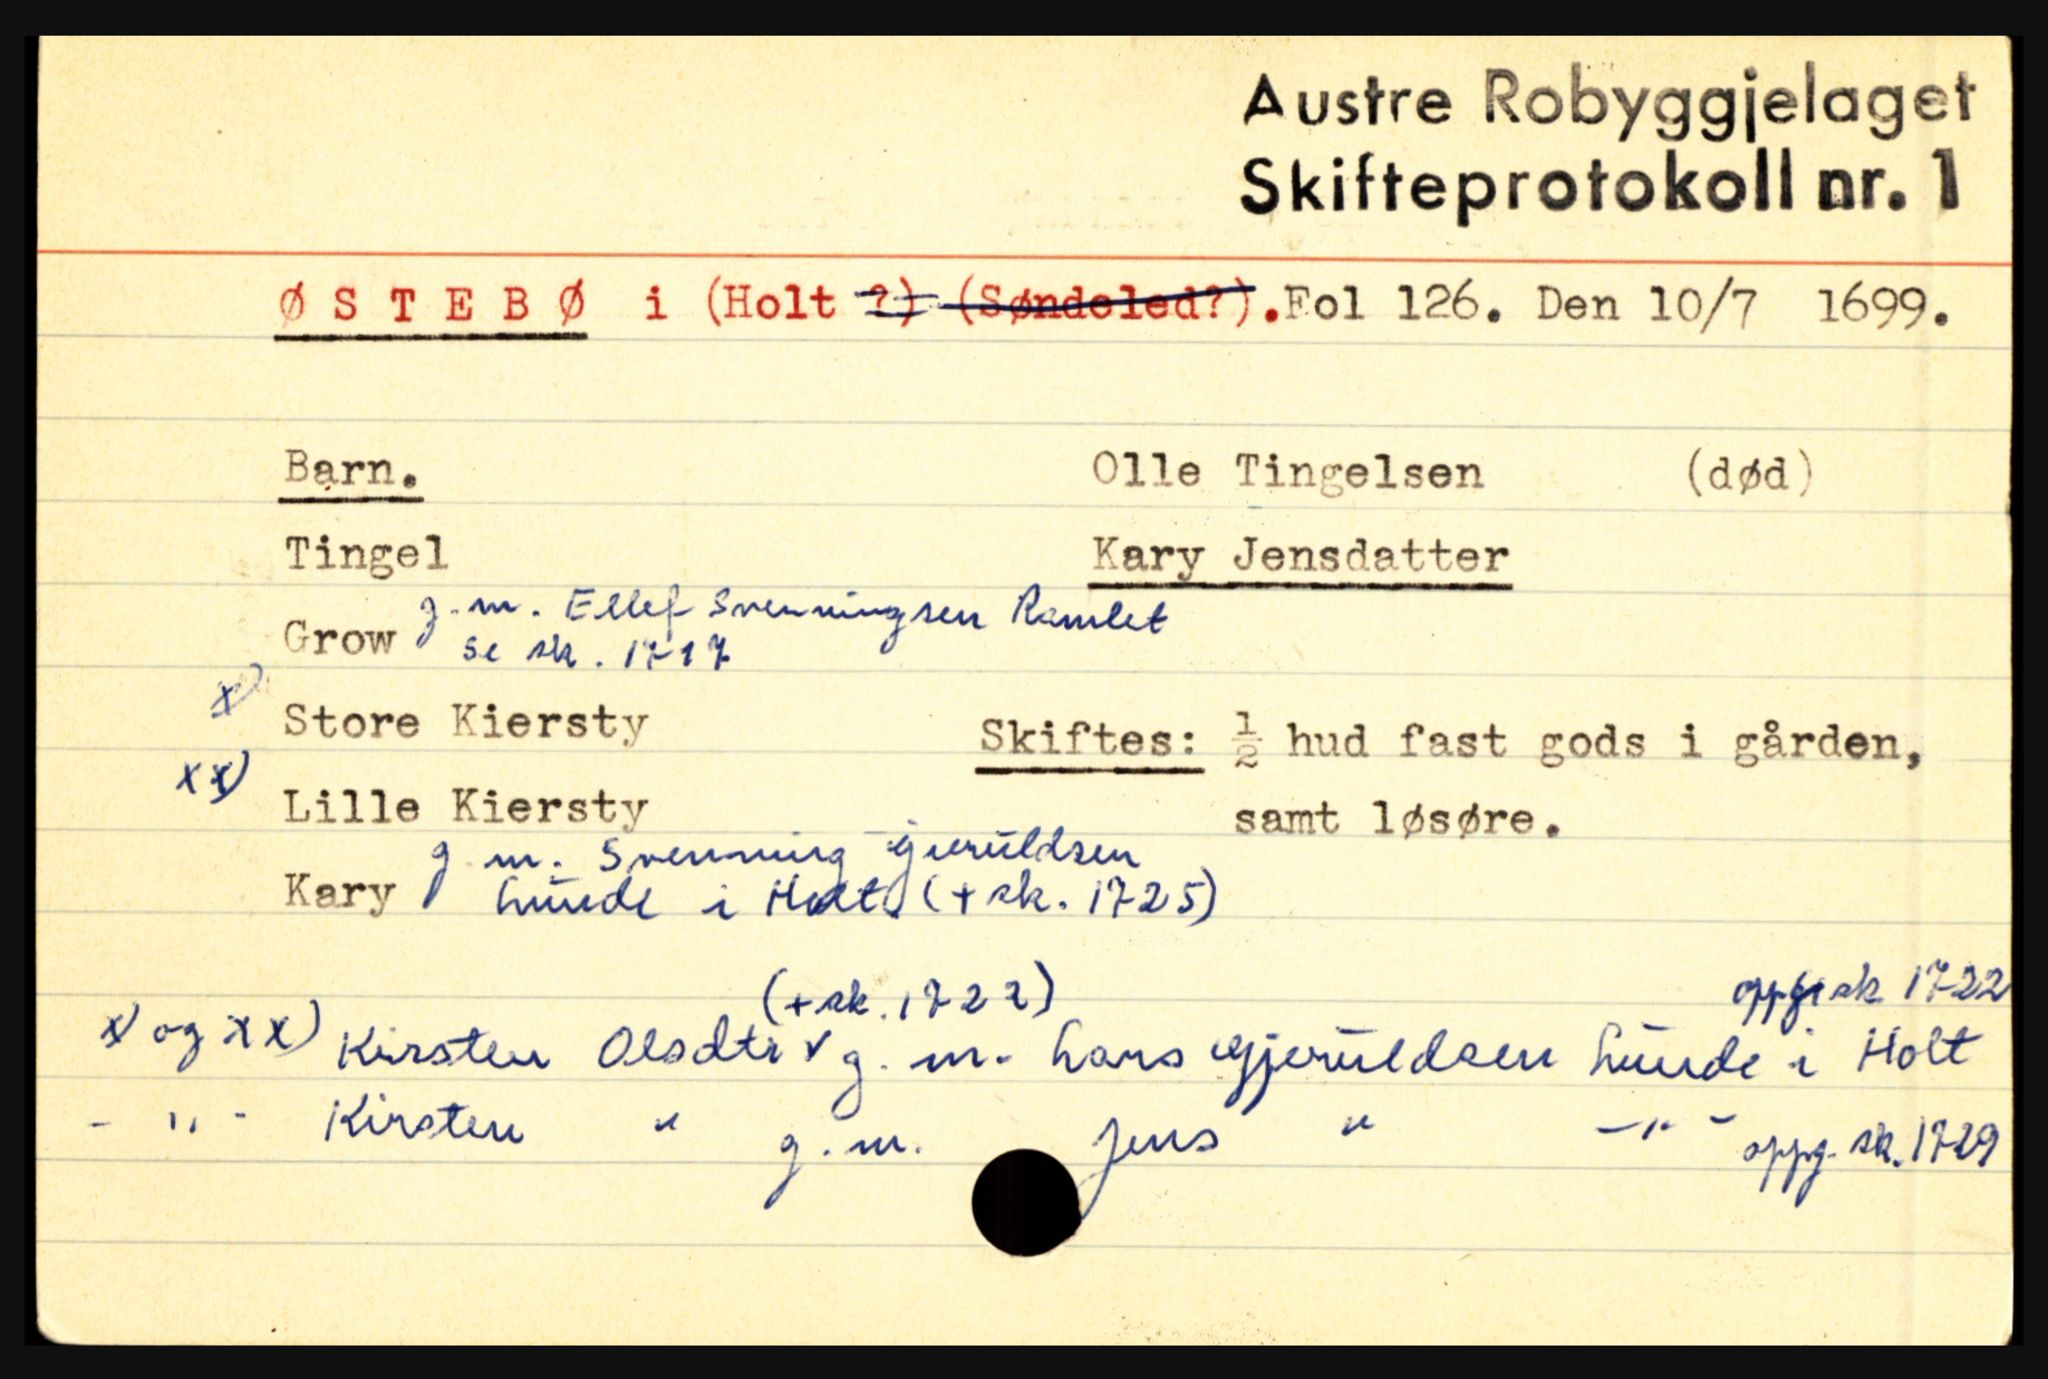 Austre Robyggjelaget
Skifteprotokoll nr. 1
ØSTEBØ i (Holt ?) (Søndeled?). Fol 126. Den 10/7 1699.
Barn.
Olle Tingelsen (død)
Tingel
Kary Jensdatter
Grow g.m. Ellef Svenningsen Ramlet
se sk. 1717
x) Store Kiersty
Skiftes: ½ hud fast gods i gården,
xx) Lille Kiersty
samt løsøre.
Kary g.m. Svenning Gjeruldsen
Lunde i Holt (+ sk. 1725)
(+ sk. 1722) oppg. sk. 1722
x) og xx) Kirsten Olsdtr v g.m. Lars Gjeruldsen Lunde i Holt
- " - Kirsten " g.m. Jens " - " - oppg. sk. 1729